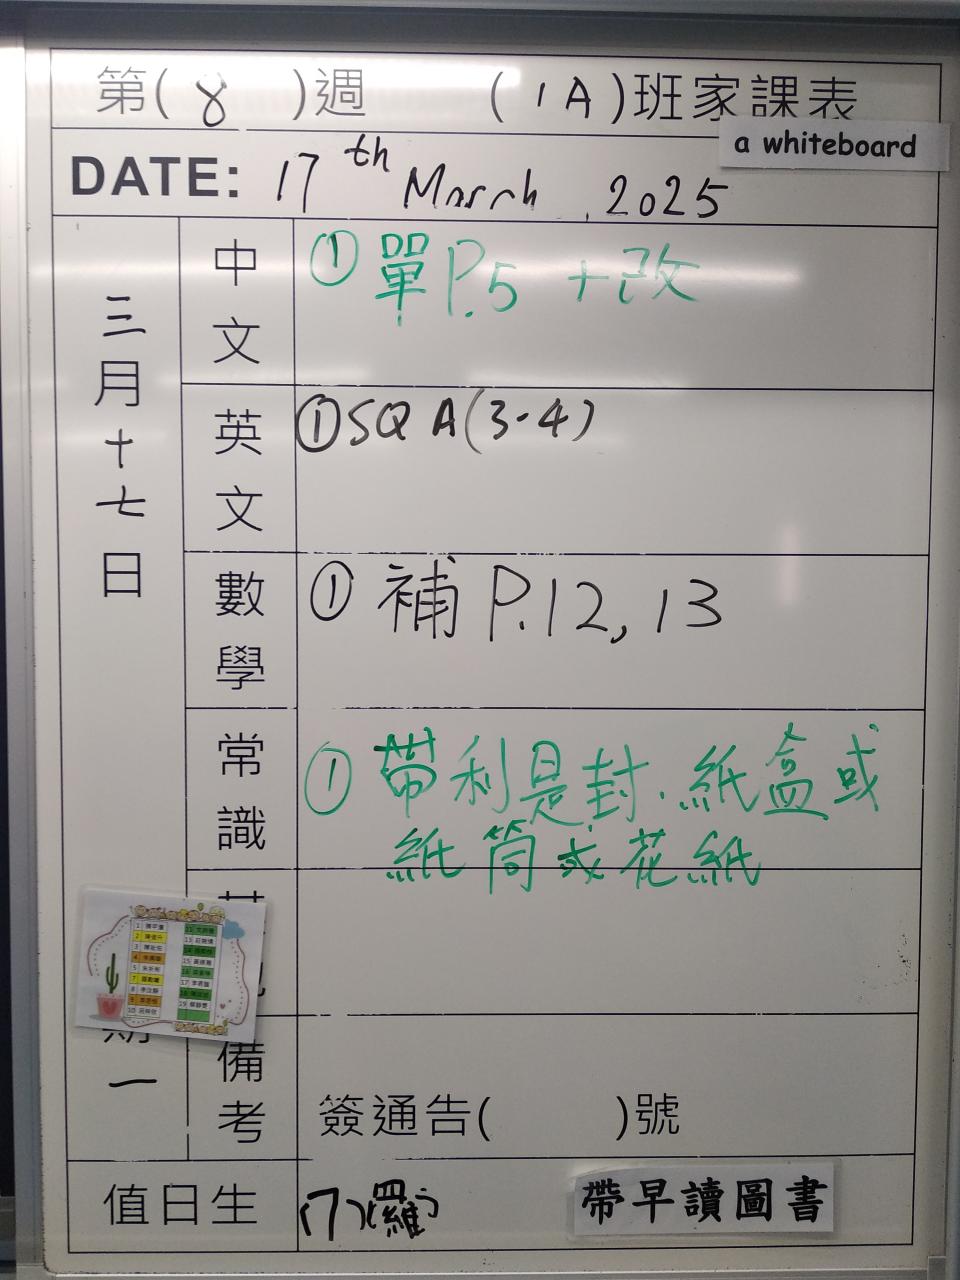 第(8)週 (1A)班家課表
a whiteboard
DATE: 17th March, 2025
三月十七日
中文
① 單P.5 +改
英文
① SQ A(3-4)
數學
① 補 P.12, 13
常識
① 帶利是封、紙盒或
紙筒或花紙
期一
備考
簽通告( )號
值日生
(7)(羅)
帶早讀圖書